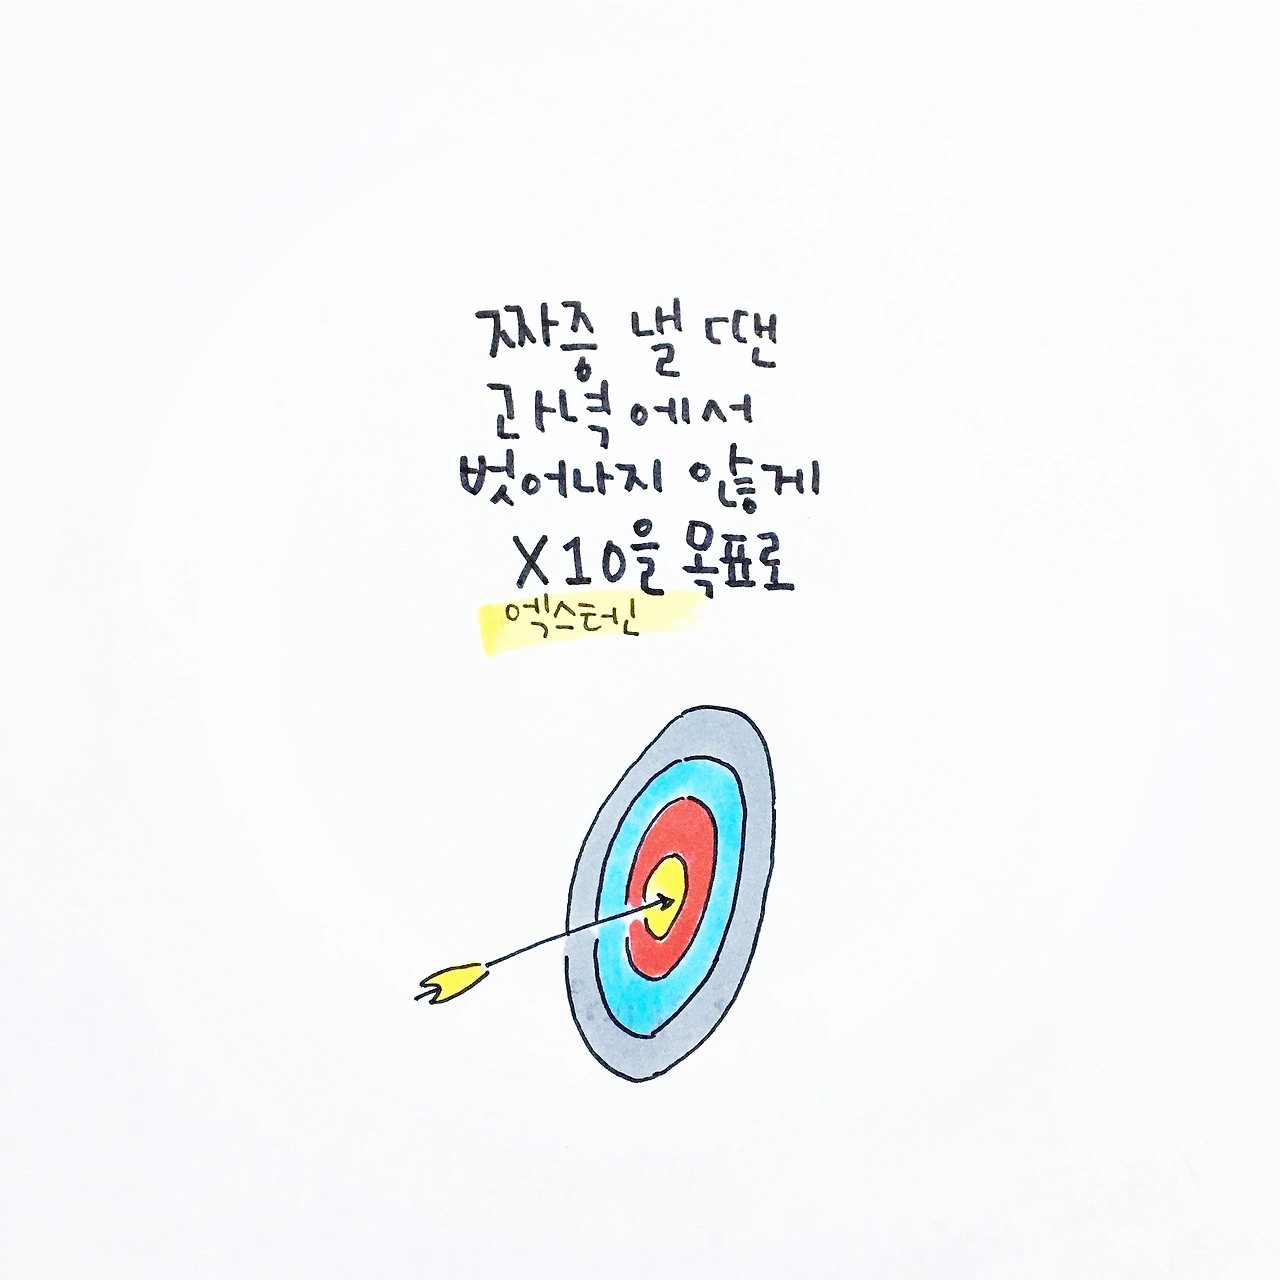 짜증 낼 땐
과녁에서
벗어나지 않게
X10을 목표로
엑스터닌